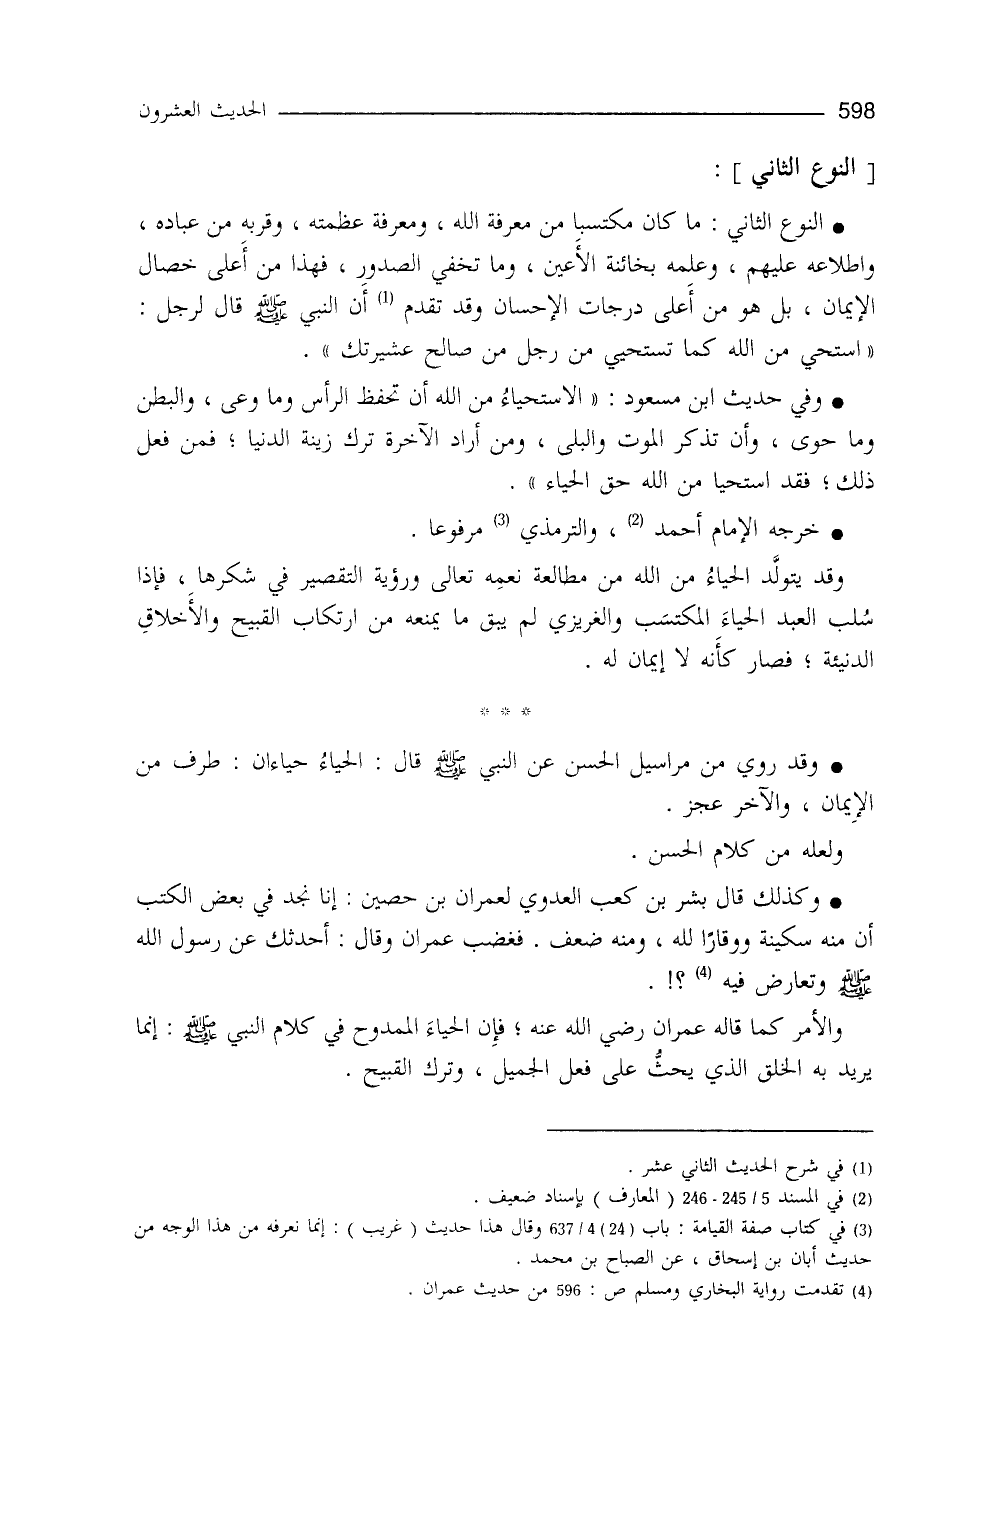 598 الحديث العشرون
[ النوع الثاني ] :
● النوع الثاني : ما كان مكتسبا من معرفة الله ، ومعرفة عظمته ، وقربه من عباده ،
واطلاعه عليهم ، وعلمه بخائنة الأَعين ، وما تخفي الصدور ، فهذا من أَعلى خصال
الإيمان ، بل هو من أَعلى درجات الإحسان وقد تقدم (1) أَن النبي ﷺ قال لرجل :
« استحي من الله كما تستحيي من رجل من صالح عشيرتك » .
● وفي حديث ابن مسعود : « الاستحياءُ من الله أن تحفظ الرأس وما وعى ، والبطن
وما حوى ، وأن تذكر الموت والبلى ، ومن أراد الآخرة ترك زينة الدنيا ؛ فمن فعل
ذلك ؛ فقد استحيا من الله حق الحياء » .
● خرجه الإمام أحمد (2) ، والترمذي (3) مرفوعا .
وقد يتولَّد الحياءُ من الله من مطالعة نعمِه تعالى ورؤية التقصير في شكرها ، فإذا
سُلب العبد الحياءَ المكتسَب والغريزي لم يبق ما يمنعه من ارتكاب القبيح والأَخلاقِ
الدنيئة ؛ فصار كأَنه لا إيمان له .
* * *
● وقد روي من مراسيل الحسن عن النبي ﷺ قال : الحياءُ حياءان : طرف من
الإِيمان ، والآخر عجز .
ولعله من كلام الحسن .
● وكذلك قال بشر بن كعب العدوي لعمران بن حصين : إنا نجد في بعض الكتب
أن منه سكينة ووقارًا لله ، ومنه ضعف . فغضب عمران وقال : أحدثك عن رسول الله
ﷺ وتعارض فيه (4) ؟! .
والأمر كما قاله عمران رضي الله عنه ؛ فإِن الحياءَ الممدوح في كلام النبي ﷺ : إنما
يريد به الخلق الذي يحثُّ على فعل الجميل ، وترك القبيح .
(1) في شرح الحديث الثاني عشر .
(2) في المسند 5 / 245 - 246 ( المعارف ) بإسناد ضعيف .
(3) في كتاب صفة القيامة : باب (24) 4 / 637 وقال هذا حديث ( غريب ) : إنما نعرفه من هذا الوجه من
حديث أبان بن إسحاق ، عن الصباح بن محمد .
(4) تقدمت رواية البخاري ومسلم ص : 596 من حديث عمران .